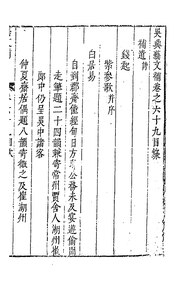 吳興藝文補卷之六十九目錄
補遺詩
錢起
紫參歌并序
白居易
自到郡齋僅經旬日方專公務未及宴遊偷閒
走筆題二十四韻兼寄常州賈舍人湖州崔
郎中仍呈吳中諸客
仲夏齋居偶題八韻寄微之及崔湖州